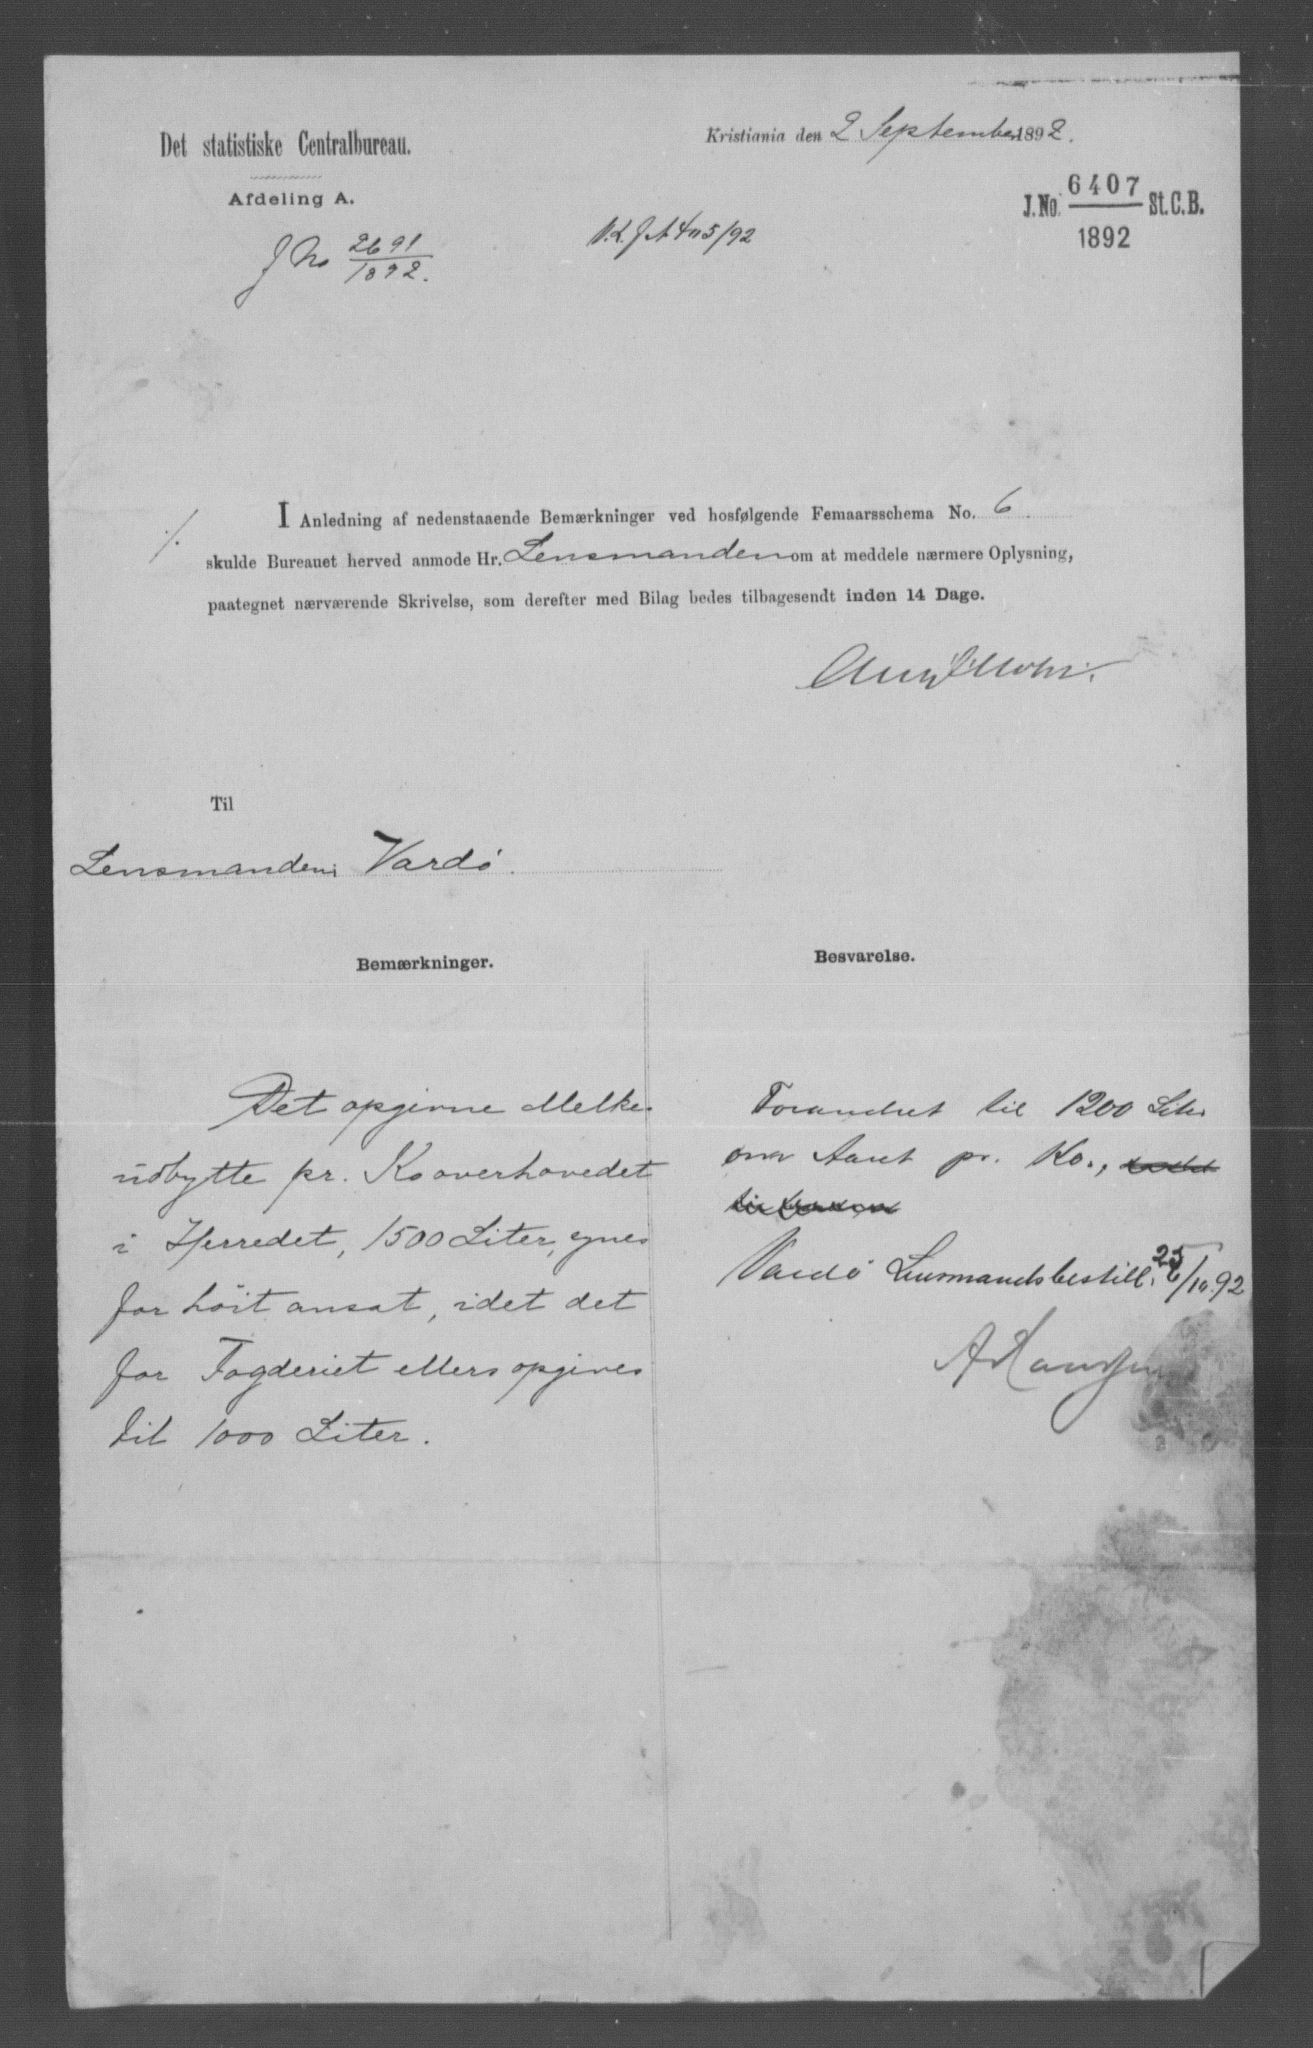 Det statistiske Centralbureau.
Afdeling A.
J No 2691/1892.
Kristiania den 2 September 1892.
J.No. 6407/1892 St.C.B.
I Anledning af nedenstaaende Bemærkninger ved hosfølgende Femaarsschema No. 6
skulde Bureauet herved anmode Hr. Lensmanden om at meddele nærmere Oplysning,
paategnet nærværende Skrivelse, som derefter med Bilag bedes tilbagesendt inden 14 Dage.
Til
Lensmanden i Vardö.
Bemærkninger.
Det opgivne Melke-
udbytte pr. Ko overhovedet
i Herredet, 1500 Liter, synes
for höit ansat, idet det
for Fogderiet ellers opgives
til 1000 Liter.
Besvarelse.
Forandret til 1200 Liter
om Aaret pr. Ko.,
Vardö Lensmandsbestill. /10.92
A Hansen